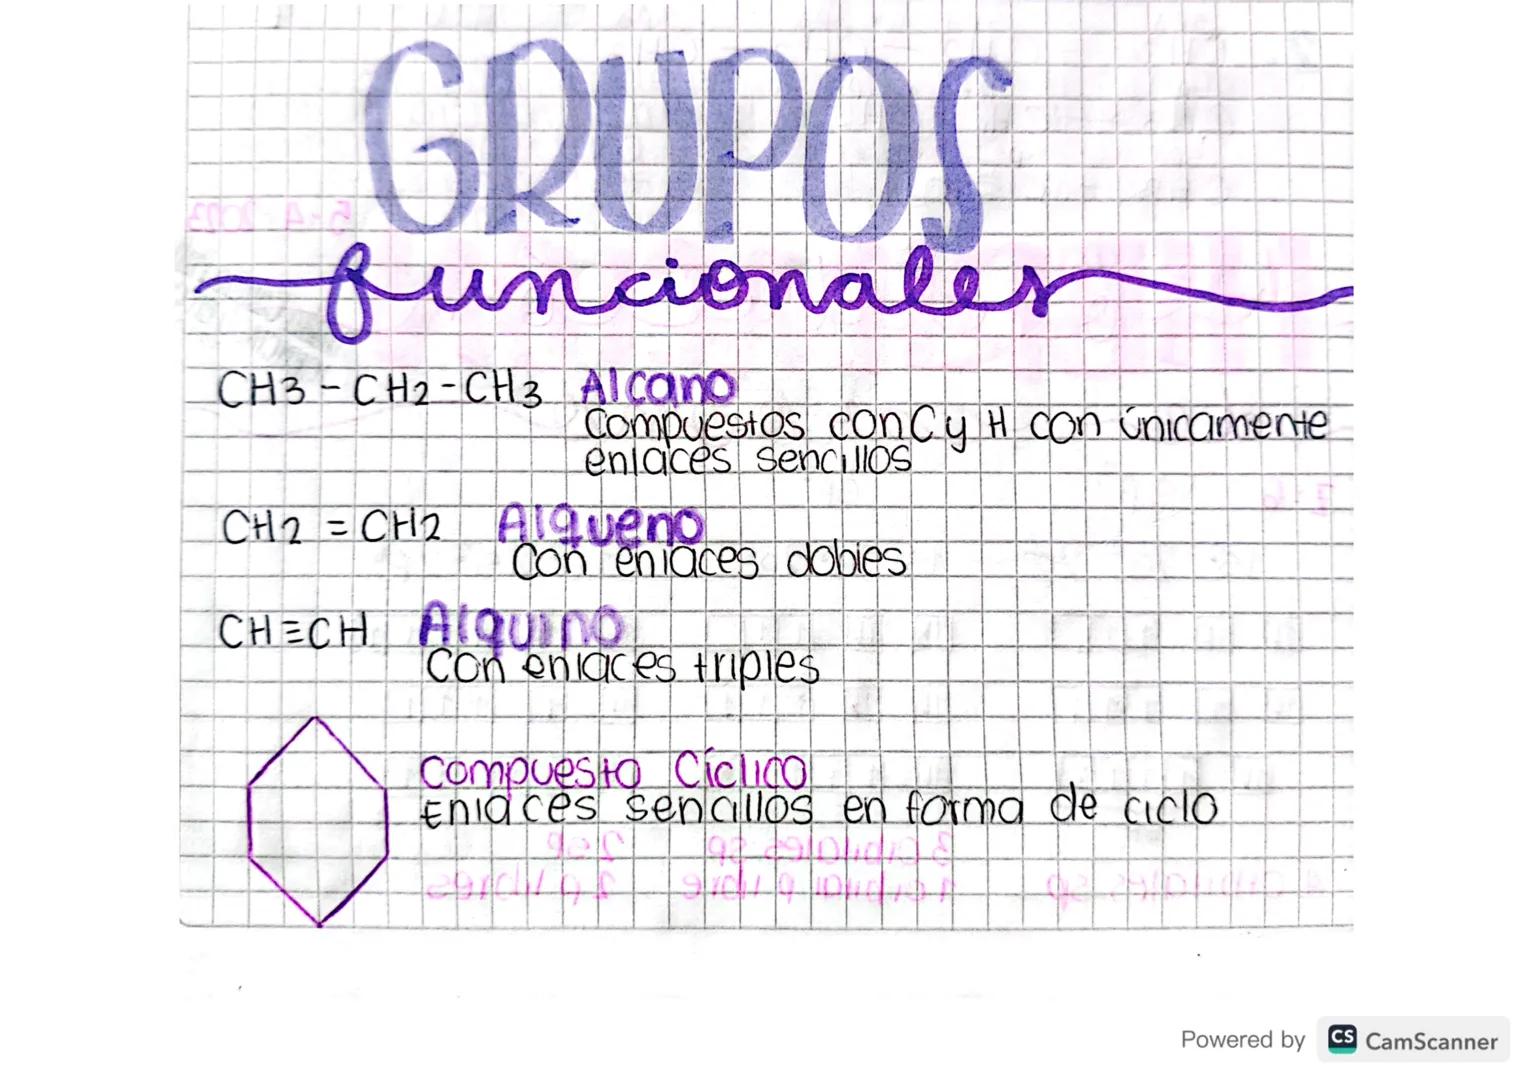 GRUPOS
funcionales
CH3 - CH2 - CH3 Alcano
Compuestos con C y H con únicamente
enlaces sencillos
CH2 = CH2 Alqueno
Con enlaces dobles
CH≡CH Alquino
Con enlaces triples
Compuesto Cíclico
Enlaces sencillos en forma de ciclo
Powered by CS CamScanner